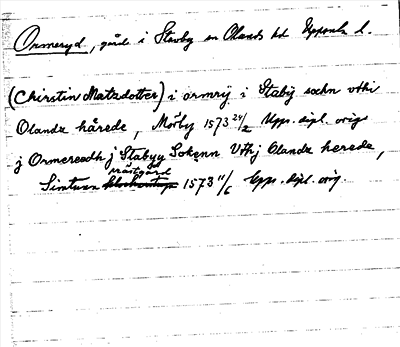 Ormeryd, gård i Stavby sn Olands hd Uppsala l.
(Chirstin Matzdotter) i ormrij i Stabij sochn vthi
Olandz hårede, Mörby 1573 24/2 Upps. dipl. orig
j Ormereedh j Stabyy Sokenn Vthj Olandz herede,
prästgård
Simtuna 1573 11/6 Upps. dipl. orig.